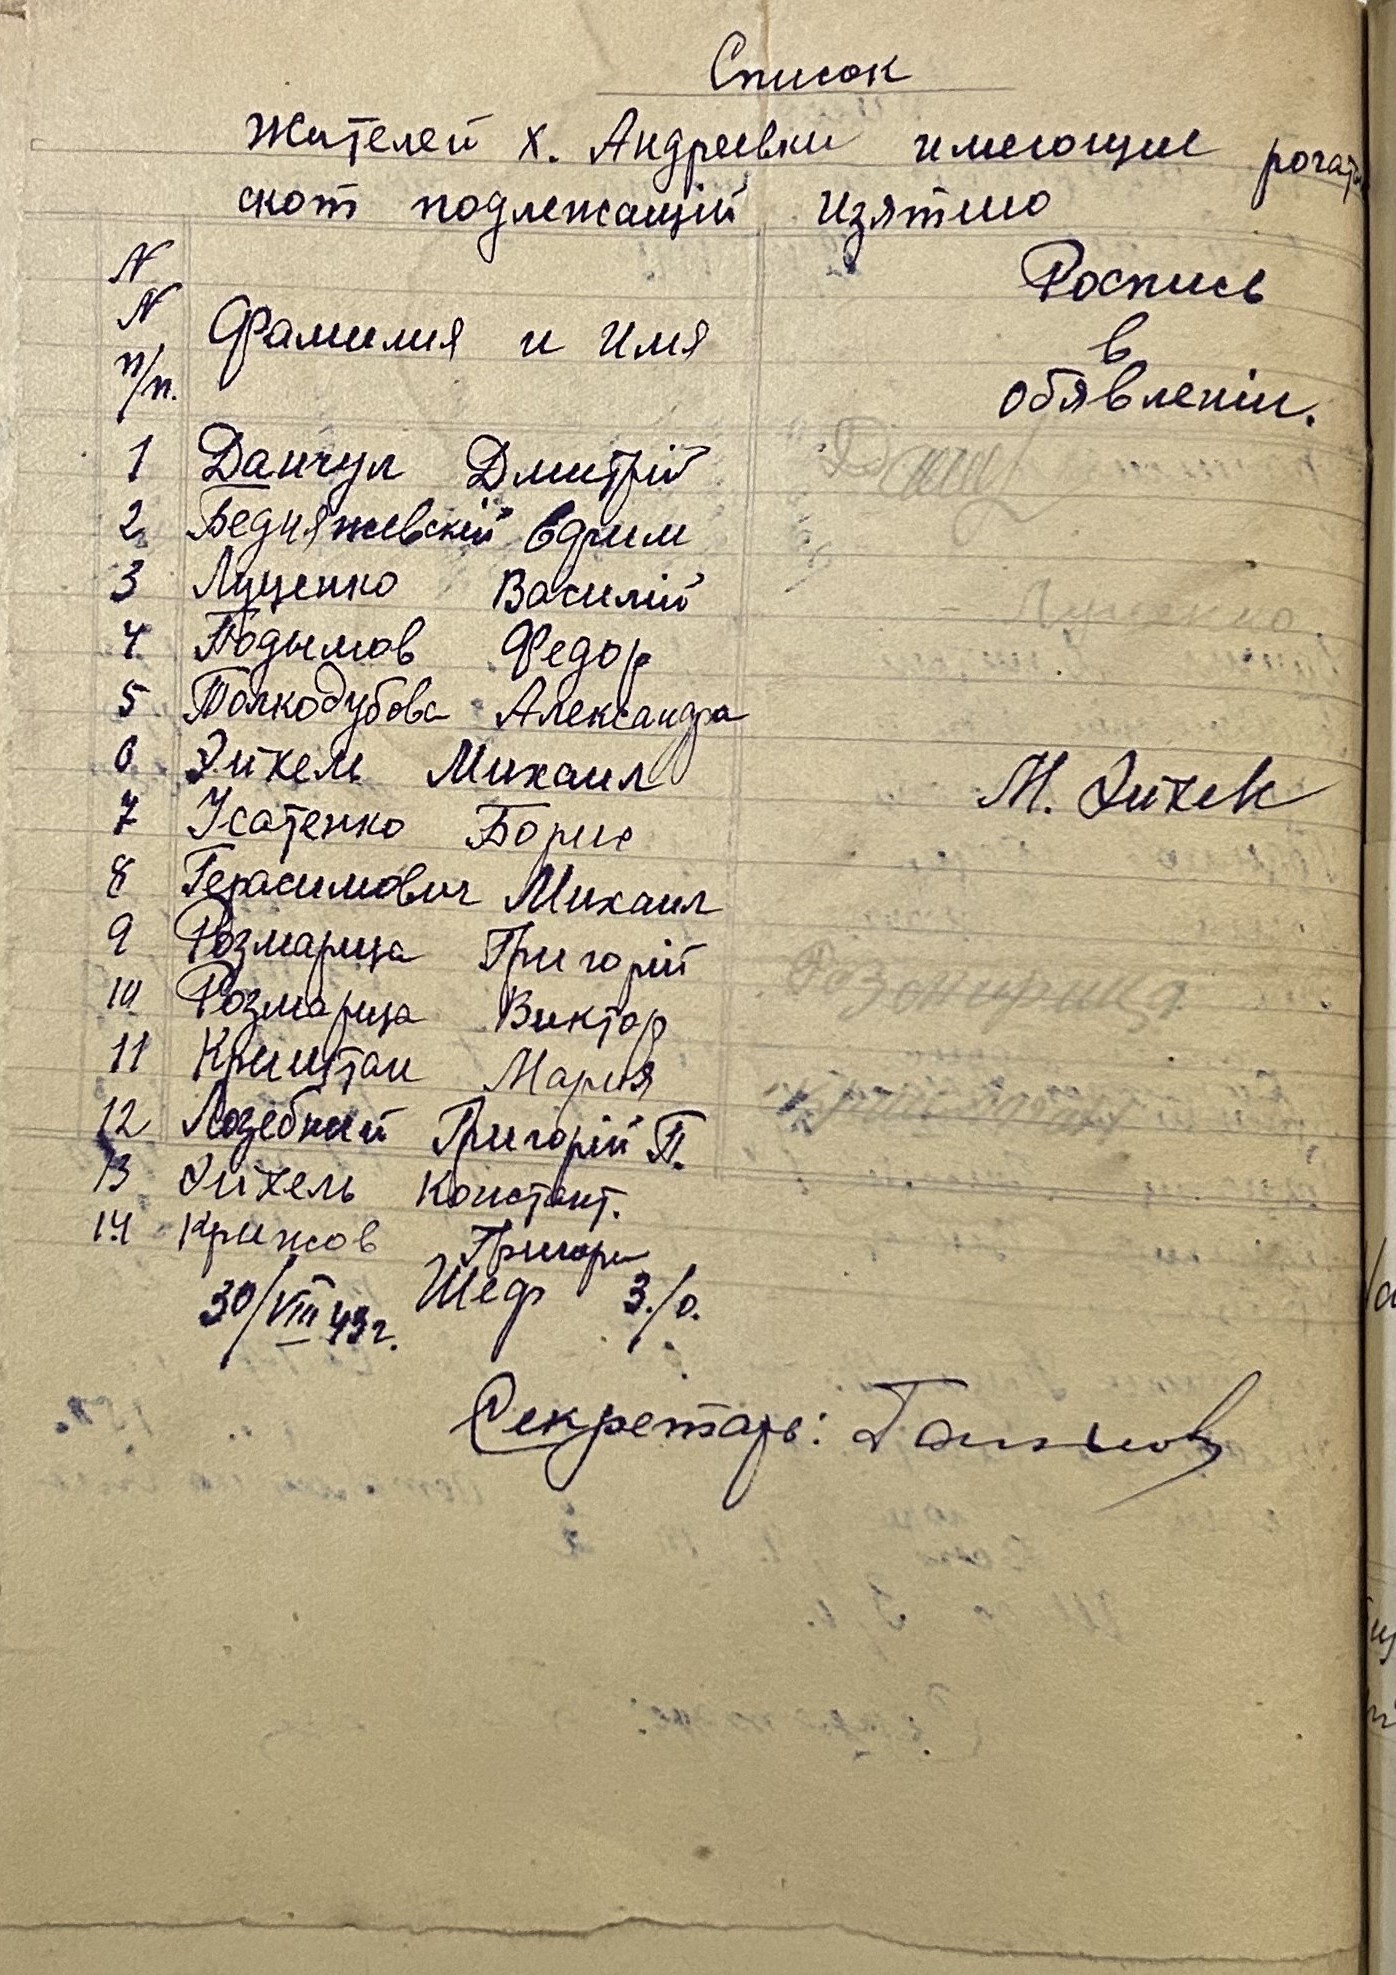 Список
Жителей х. Андреевки имеющие рогат
скот подлежащій изятию
N
N
п/п.
Фамилия и Имя
Роспись
в
обявленіи.
1 Данчул Дмитрій
2 Бедняжевскій Ефим
3 Луценко Василій Луценко
4 Подымов Федор
5 Толкодубова Александра
6 Эйхель Михаил М. Эйхель
7 Усатенко Борис
8 Герасимович Михаил
9 Розмарица Григорій Розмарица
10 Розмарица Виктор
11 Криштан Мария
12 Лозебный Григорій П.
13 Эйхель Констант.
14 Крижов Григори
30/VIII 43 г. Шеф З./О.
Секретарь: